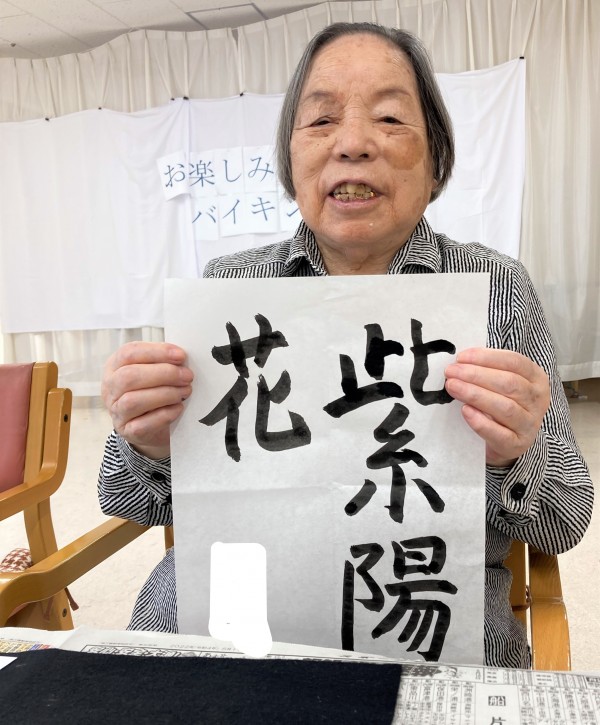 お楽しみ
バイキン
紫陽
花
船
片